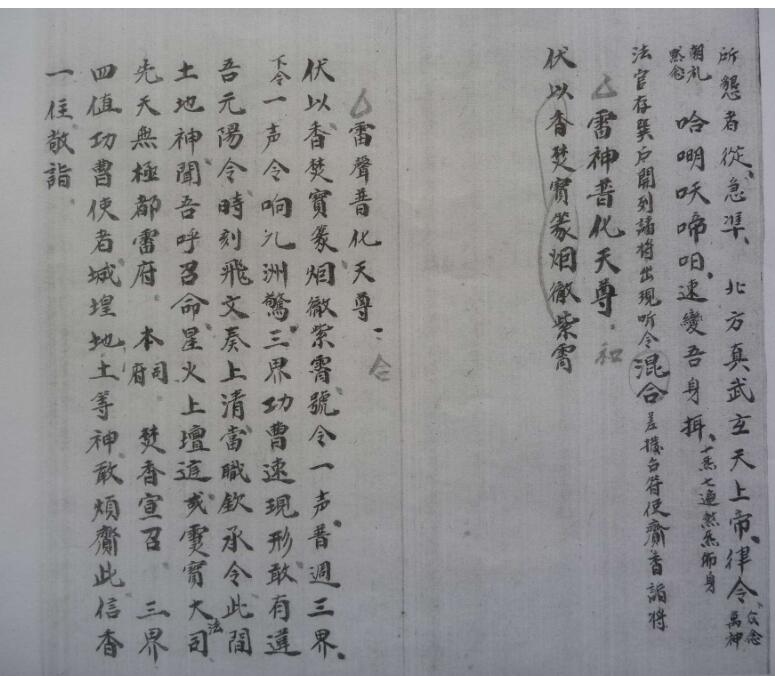 所懇者從急準、北方真武玄天上帝、律令、仅念萬神
朝礼默念 哈唎吙啼呬、速變吾身揖、十炁七遍然炁佈身
法官存巽戶開到諸將出現听令混合差撥台符使齎香詣將
雷神普化天尊 和
伏以香焚寶篆烟徹紫霄
雷聲普化天尊 仝
伏以香焚寶篆烟徹紫霄號令一声普週三界
下令一声令响九洲驚三界功曹速現形敢有違
吾元陽令時刻飛文奏上清當職欽承令此間
土地神聞吾呼召命星火上壇這或靈寶大法司
先天無極都雷府 本司府 焚香宣召 三界
四值功曹使者城埕地土等神敢煩齎此信香
一住敬詣